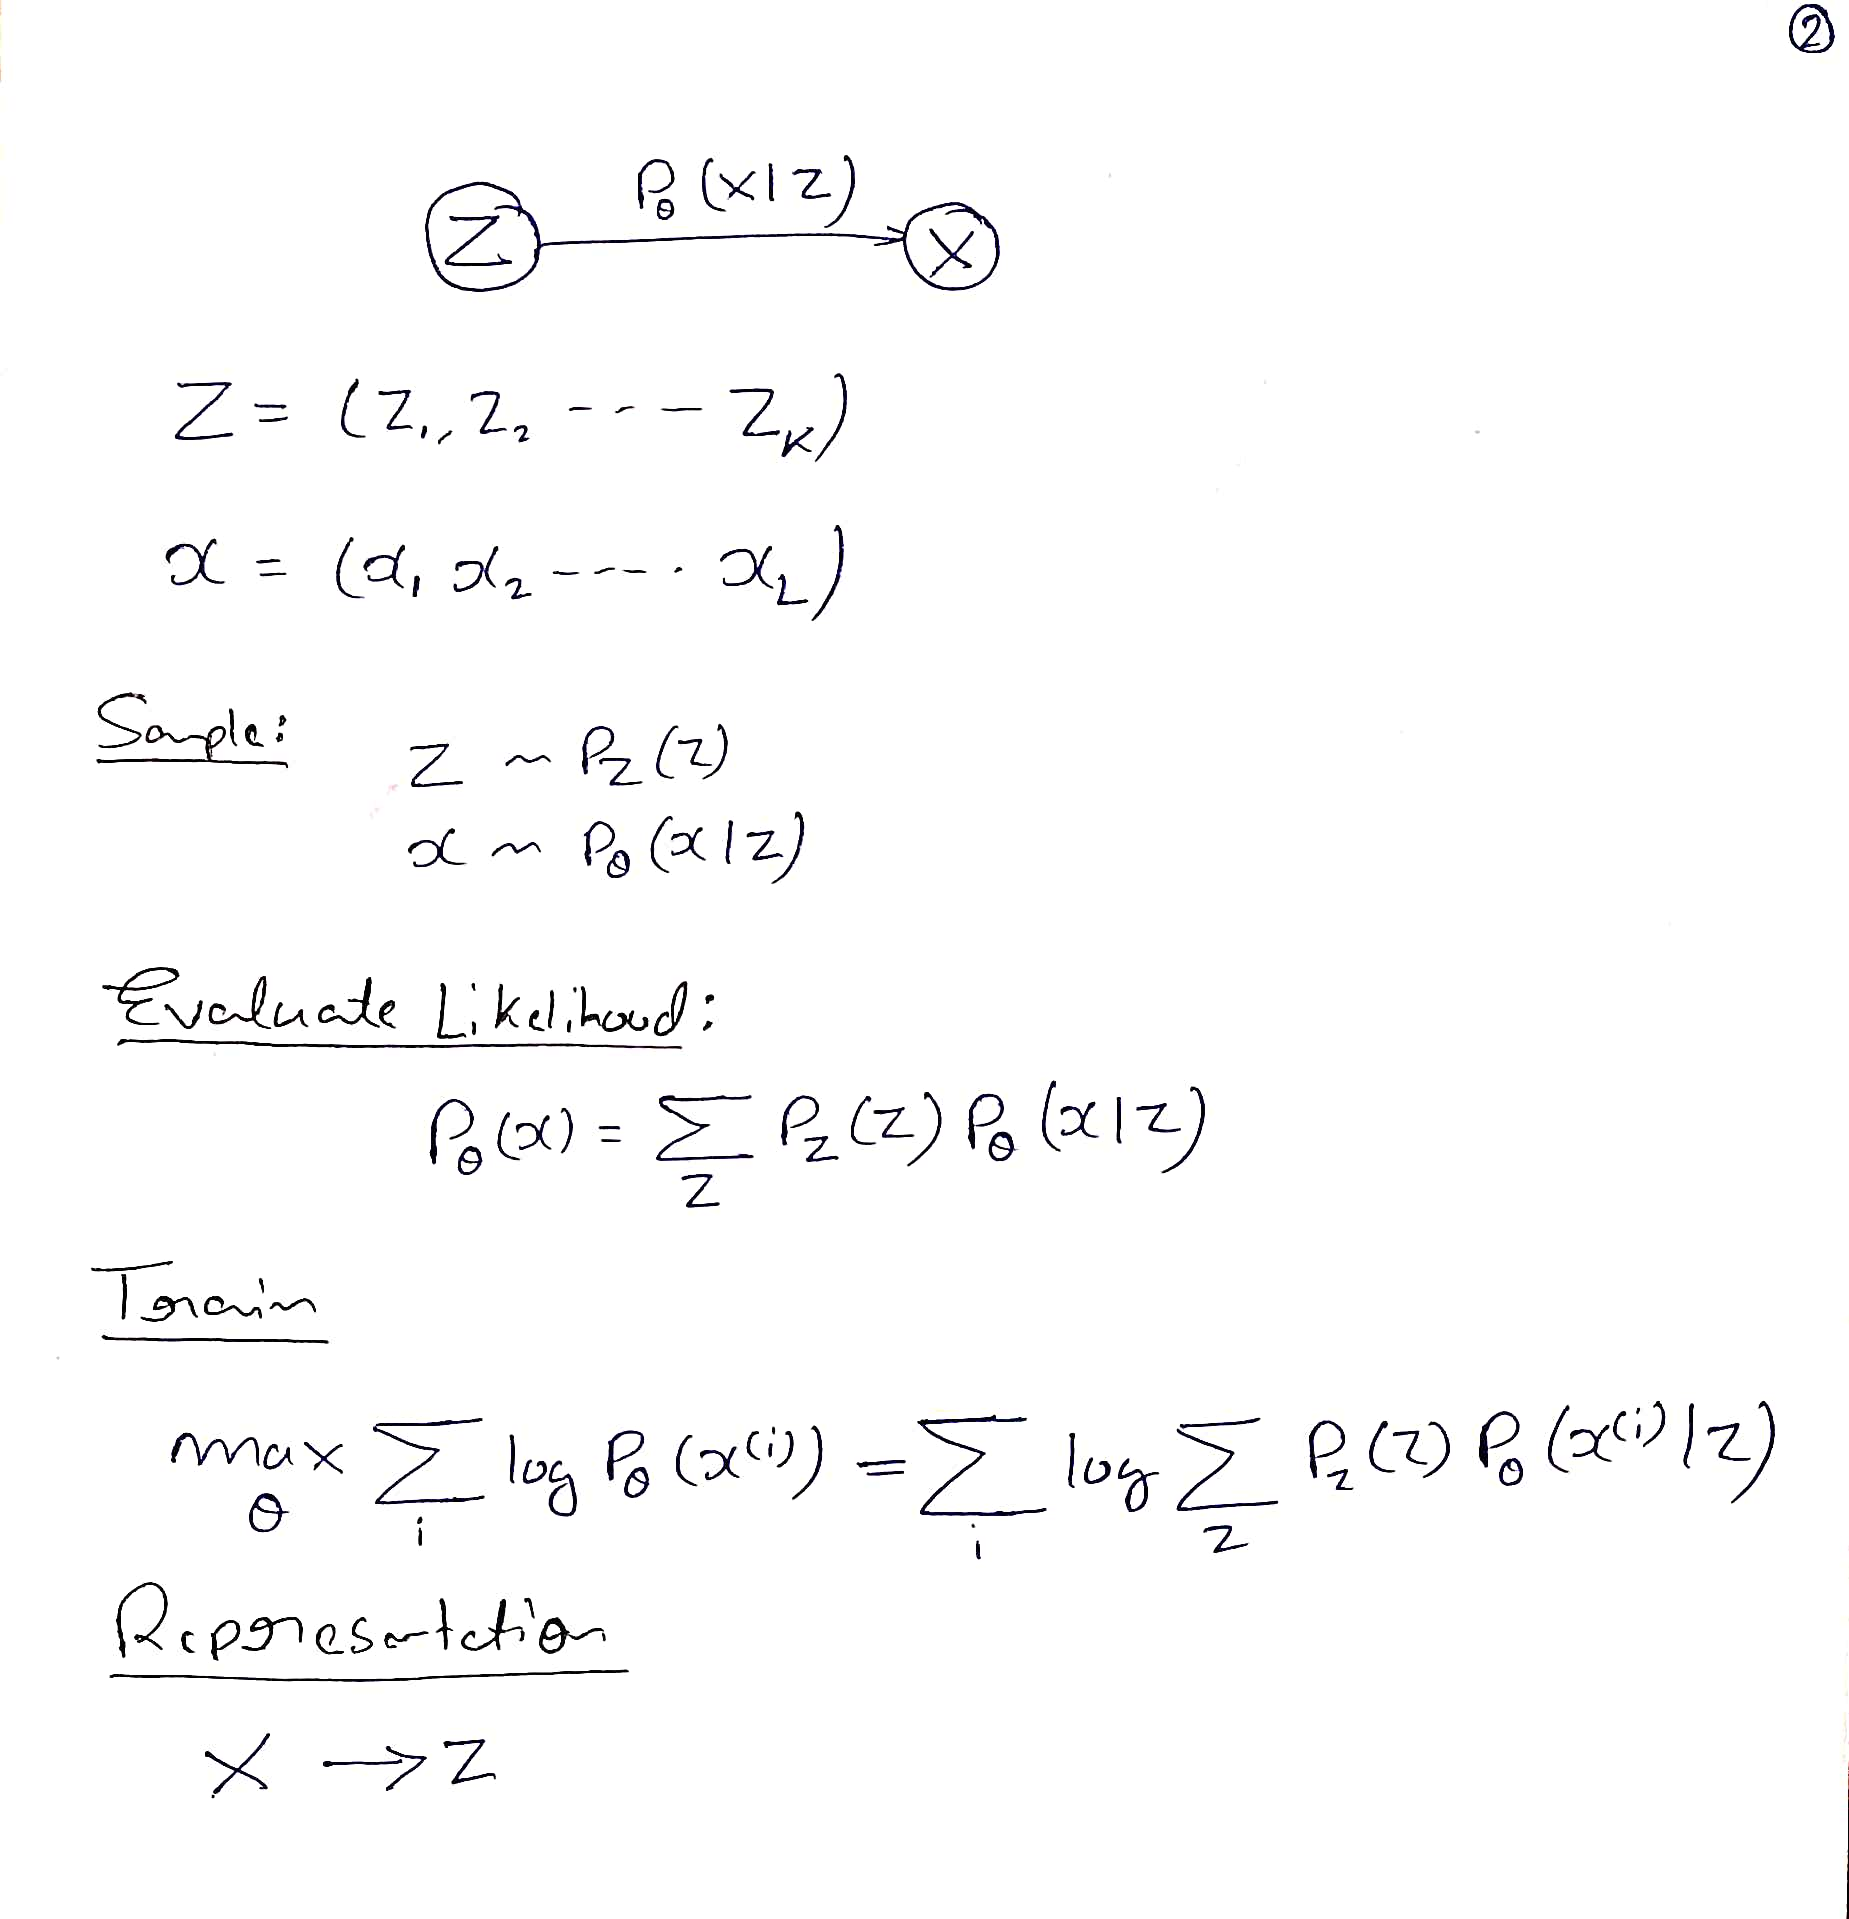 ②
P_θ(x|z)
Z → X
Z = (Z₁, Z₂ --- Z_K)
x = (x₁ x₂ ----. x_L)
Sample:
z ~ P_Z(z)
x ~ P_θ(x|z)
Evaluate Likelihood:
P_θ(x) = Σ_z P_Z(z) P_θ(x|z)
Train
max_θ Σ_i log P_θ(x⁽ⁱ⁾) = Σ_i log Σ_z P_Z(z) P_θ(x⁽ⁱ⁾|z)
Representation
X → Z